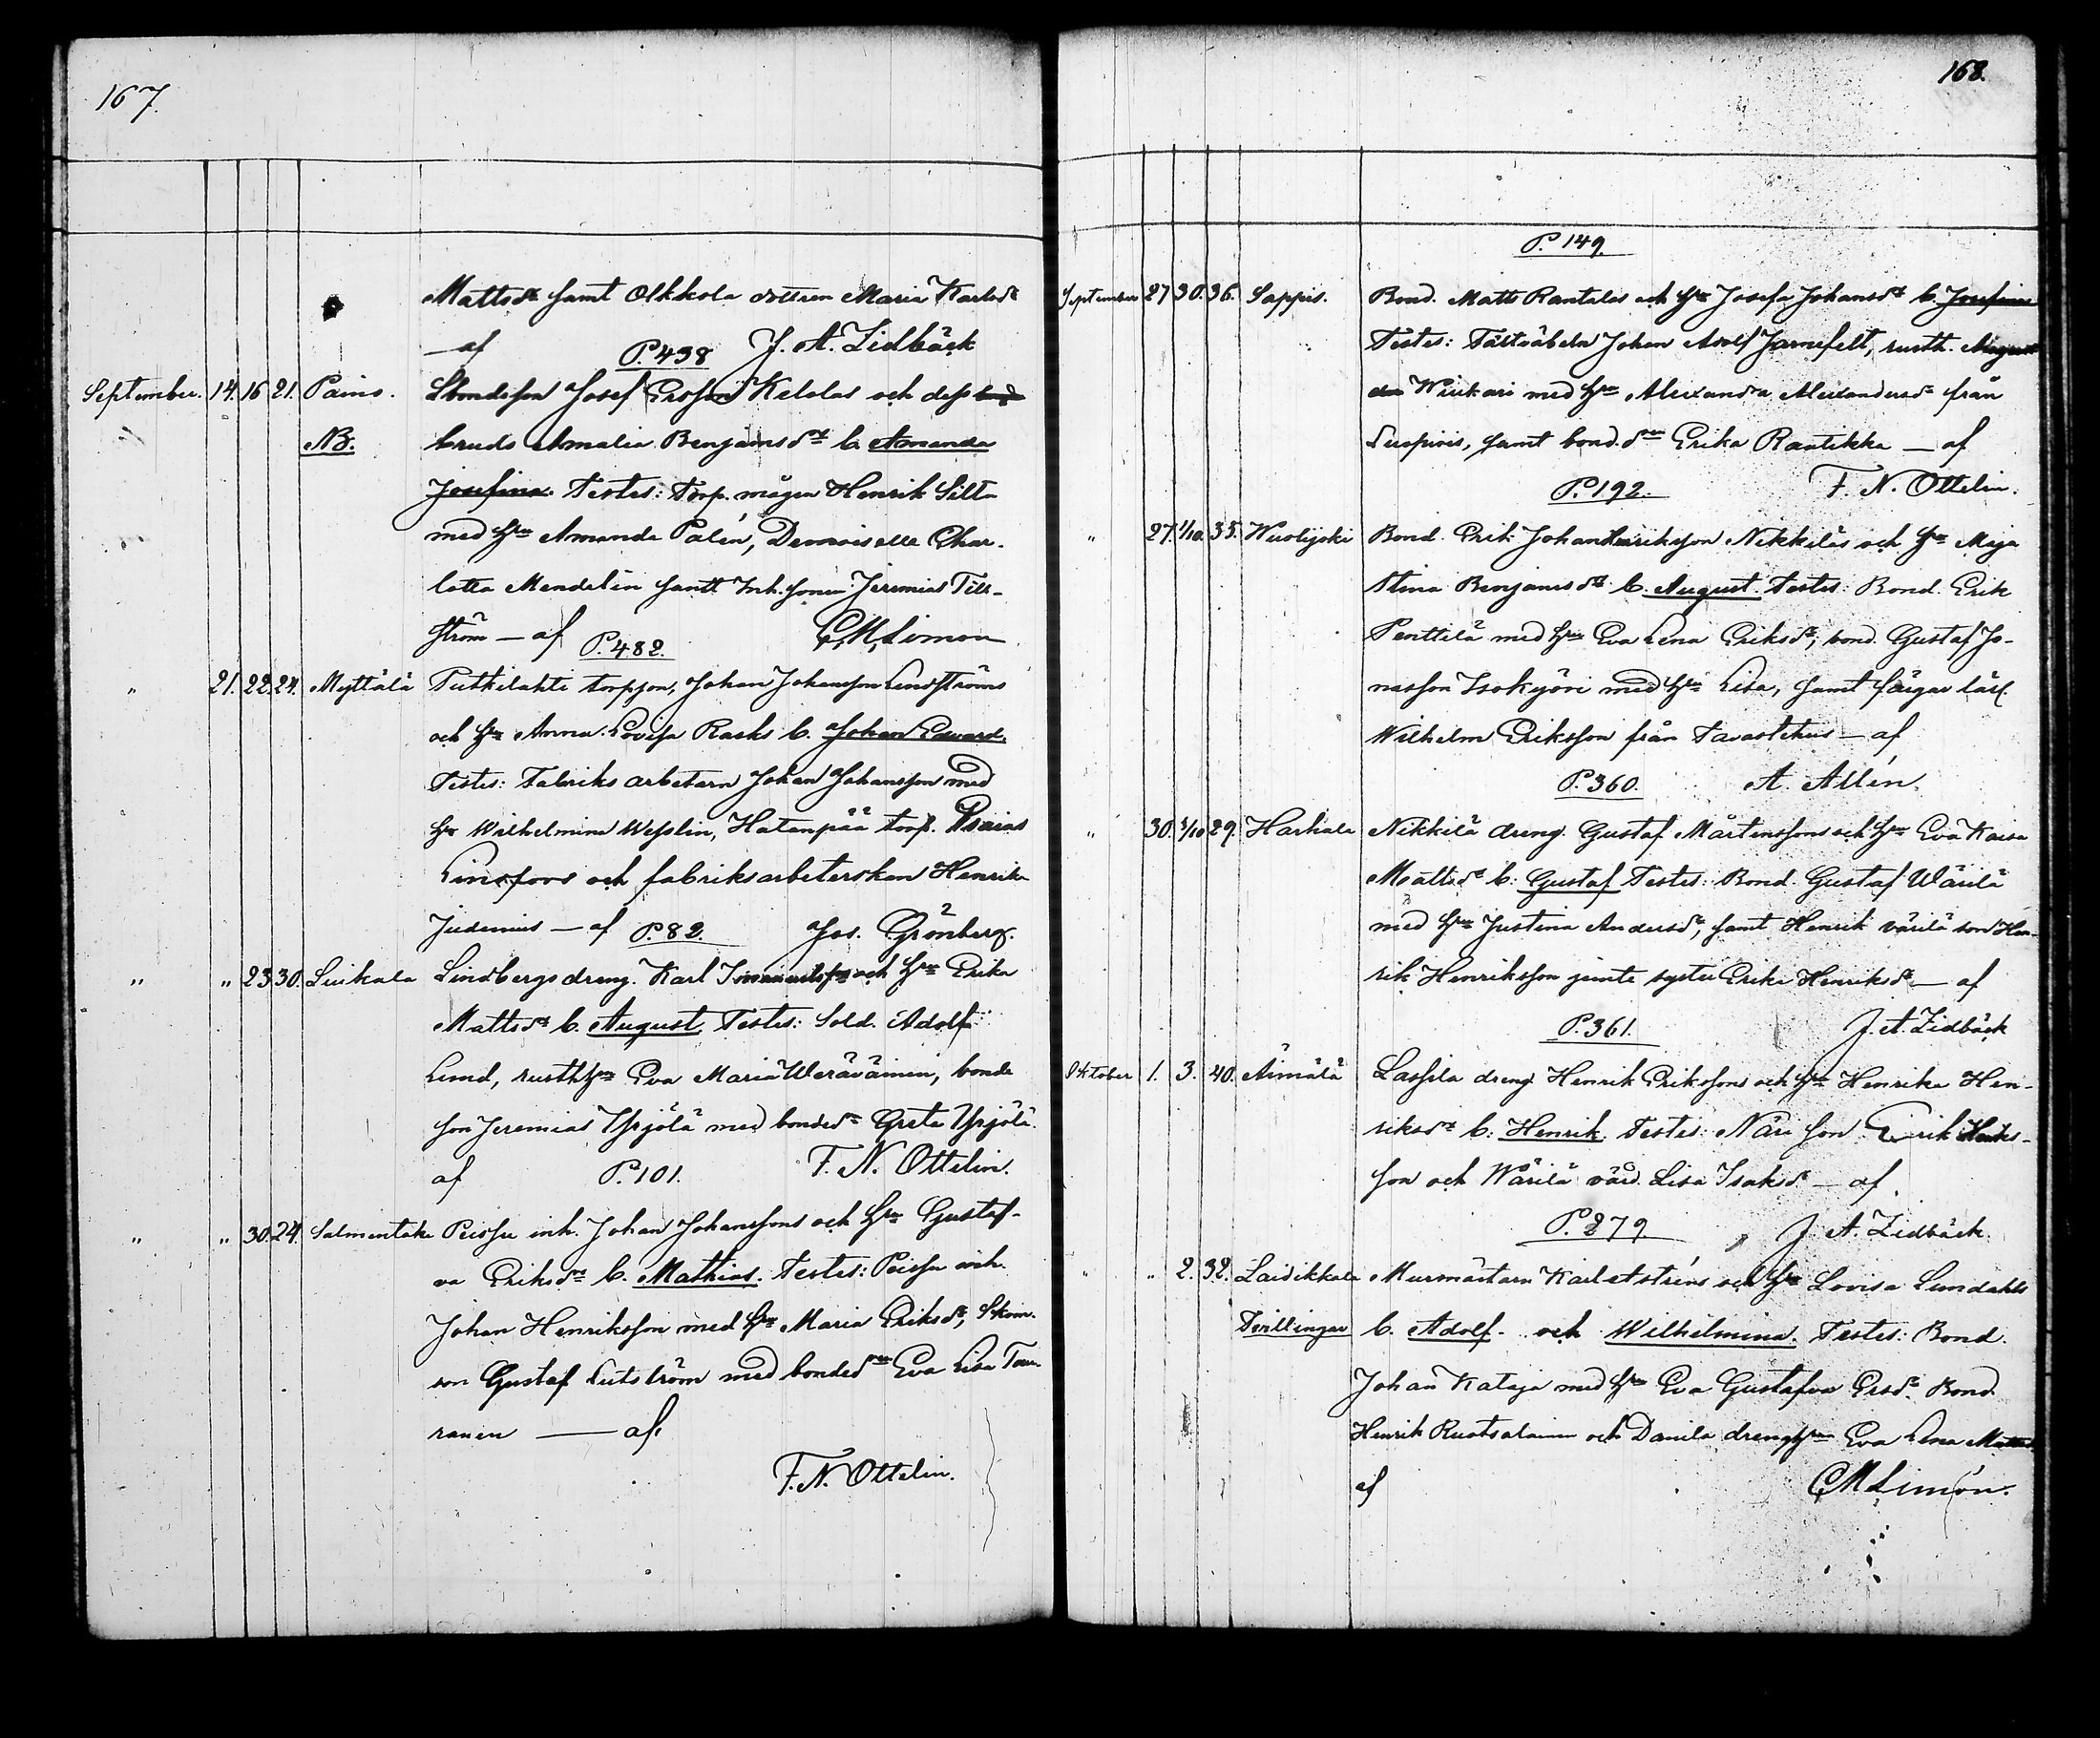 167.
Mattsdr samt Olkkola dottren Maria Karlsdr
— af J. A. Lidbäck
P. 438
September. 14. 16 21. Paino. Sbondeson Josef Ersson Kelolas och dess
NB. bruds Amalia Benjamsdrs b. Amanda
Josefina. Testes: Torp. mågen Henrik Silta
med hru Amanda Palén, Demoiselle Char-
lotta Mendelin samt Inh. sonen Jeremias Till-
ström — af C. M. Limon
P. 482.
" 21. 22. 24. Myttälä Putkilahti torpson, Johan Johansson Lindströms
och hru Anna Lovisa Rasks b. Johan Edvard.
Testes: Fabriks arbetarn Johan Johansson med
hu Wilhelmina Wesslin, Hatanpää torp. Esaias
Linsfors och fabriksarbeterskan Henrika
Judenius — af Jos. Grönberg.
P. 82.
" " 23. 30. Luikala Lindbergs dreng. Karl och hru Erika
Mattsdrs b. August Testes: Sold. Adolf
Lund, rusthhru Eva Maria Weräväinen, bonde
son Jeremias Yrjölä med bondedr Greta Yrjölä.
af F. N. Ottelin.
P. 101.
" " 30. 24. Salmentaka Peissu inh. Johan Johanssons och hru Gustaf-
va Eriksdrs b. Mathias. Testes: Peissu inh.
Johan Henriksson med hru Maria Eriksdr, Skom.
son Gustaf Lutström med bondedren Eva Lisa Tau-
ranen — af
F. N. Ottelin.
168.
P. 149.
September 27 30. 36. Sappis. Bond. Matts Rantalas och hru Josefa Johansdrs b. Josefina
Testes: Johan Adolf Jarnefelt, rusth. August
Wiukari med hru Alexandra Alexandersdr från
samt bond. dren Erika Rantikka — af
F. N. Ottelin.
P. 192.
" 27. 1/10. 35. Wuolijoki Bond. Erik Johan Henriksson Nikkiläs och hru Maja
Stina Benjamsdrs b. August. Testes: Bond. Erik
Penttilä med hru Eva Lena Eriksdr, bond. Gustaf Jo-
nasson Isokyöri med hru Lisa, samt färgar lärl.
Wilhelm Eriksson från Tavastehus — af
A. Allén.
P. 360.
" 30. 1/10 29. Harhala Nikkilä dreng. Gustaf Mårtenssons och hru Eva Kaisa
Mattsdrs b: Gustaf Testes: Bond. Gustaf Wärilä
med hru Justina Andersdr, samt Henrik värilä son Hen-
rik Henriksson jemte syster Erika Henriksdr — af
J. A. Lidbäck
P. 361.
Oktober 1. 3. 40. Äimälä Lassila dreng Henrik Erikssons och hru Henrika Hen-
riksdrs b: Henrik. Testes: Näri son Erik
son och Wärilä värd. Lisa Isaksdr — af.
J. A. Lidbäck.
P. 279.
" " 2. 32. Laidikkala Murmästarn Karl och hru Lovisa Lundahls
Tvillingar b. Adolf. och Wilhelmina. Testes: Bond.
Johan Kataja med hru Eva Gustafva Ersdr. Bond.
Henrik Ruotsalainen och Danila drenghru Eva Lena
af C M Limón.